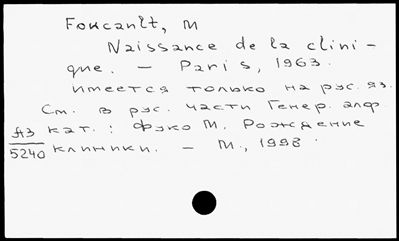 Foucault, M
Naissance de la clini-
que. - Paris, 1963.
имеется только на рус. яз.
См. в рус. части Генер. алф.
кат.: Фуко М. Рождение
клиники. - М., 1998.
Аз
5240